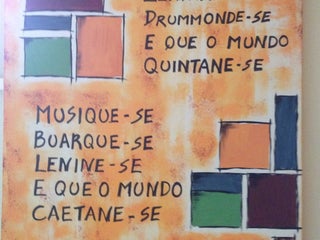 Drummonde-se
E que o mundo
Quintane-se
Musique-se
Buarque-se
Lenine-se
E que o mundo
Caetane-se